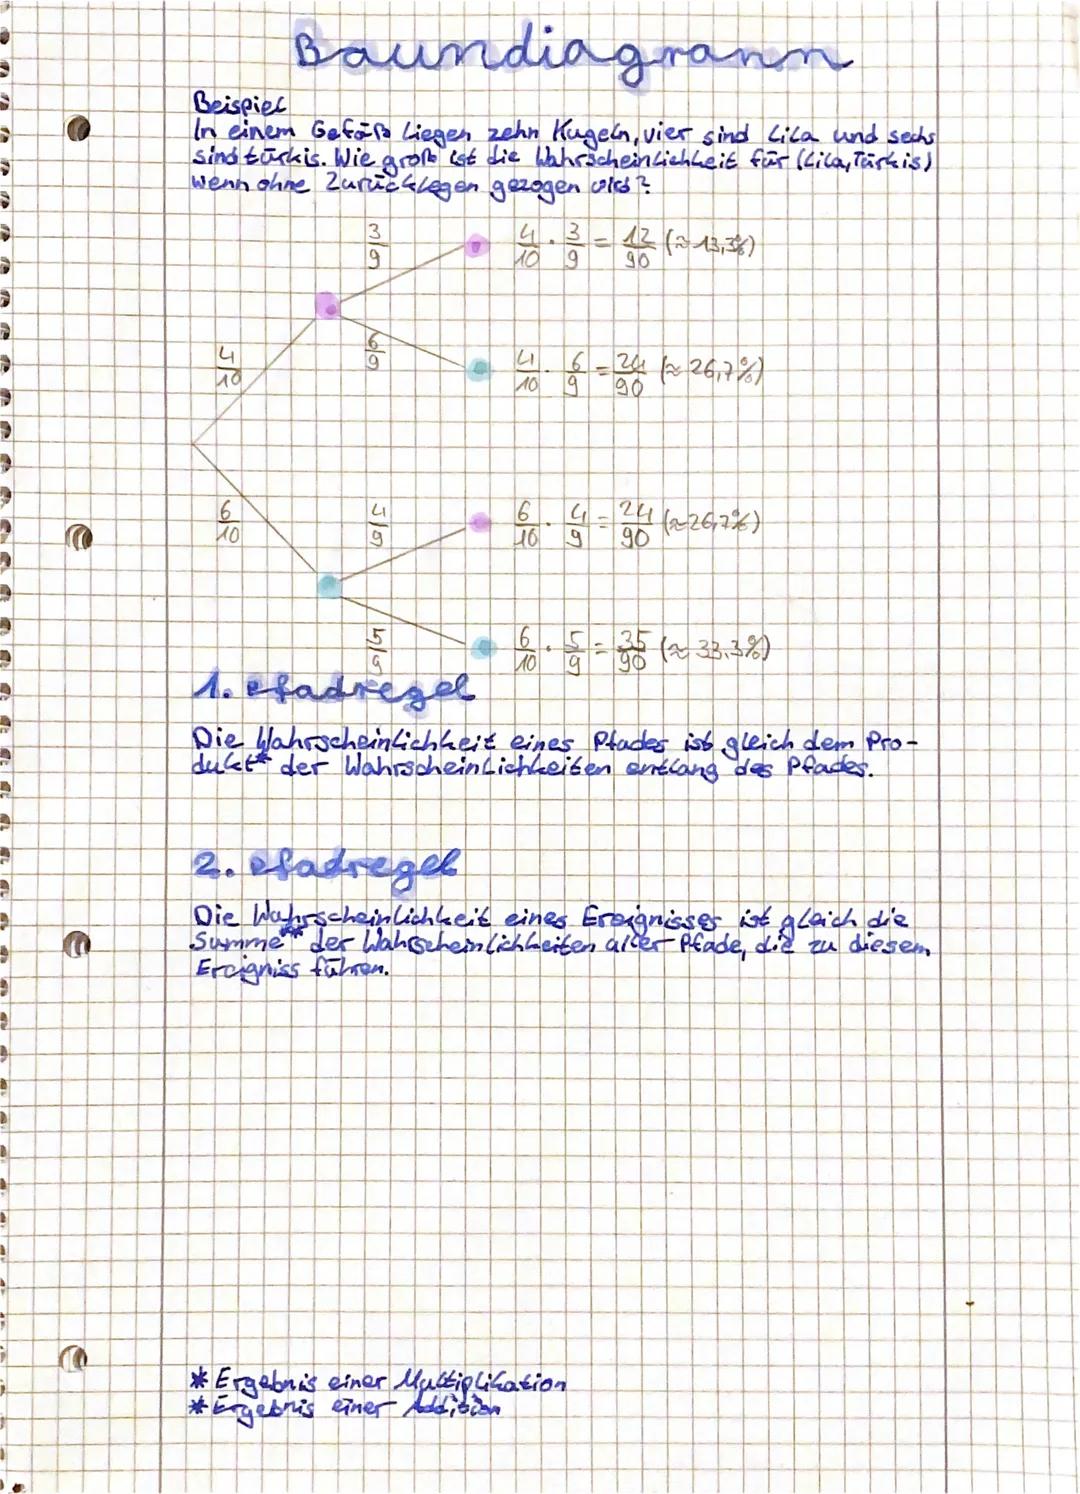 Baumdiagramm
Beispiel
In einem Gefäß liegen zehn Kugeln, vier sind Lila und sechs
sind türkis. Wie groß ist die Wahrscheinlichkeit für (Lila, Türkis)
wenn ohne Zurücklegen gezogen wird?
3/9 4/10 · 3/9 = 12/90 (≈ 13,3%)
4/10 6/9 4/10 · 6/9 = 24/90 (≈ 26,7%)
6/10 4/9 6/10 · 4/9 = 24/90 (≈ 26,7%)
5/9 6/10 · 5/9 = 35/90 (≈ 33,3%)
1. Pfadregel
Die Wahrscheinlichkeit eines Pfades ist gleich dem Pro-
dukt* der Wahrscheinlichkeiten entlang des Pfades.
2. Pfadregel
Die Wahrscheinlichkeit eines Ereignisses ist gleich die
Summe** der Wahrscheinlichkeiten aller Pfade, die zu diesem
Ereigniss führen.
* Ergebnis einer Multiplikation
* Ergebnis einer Addition